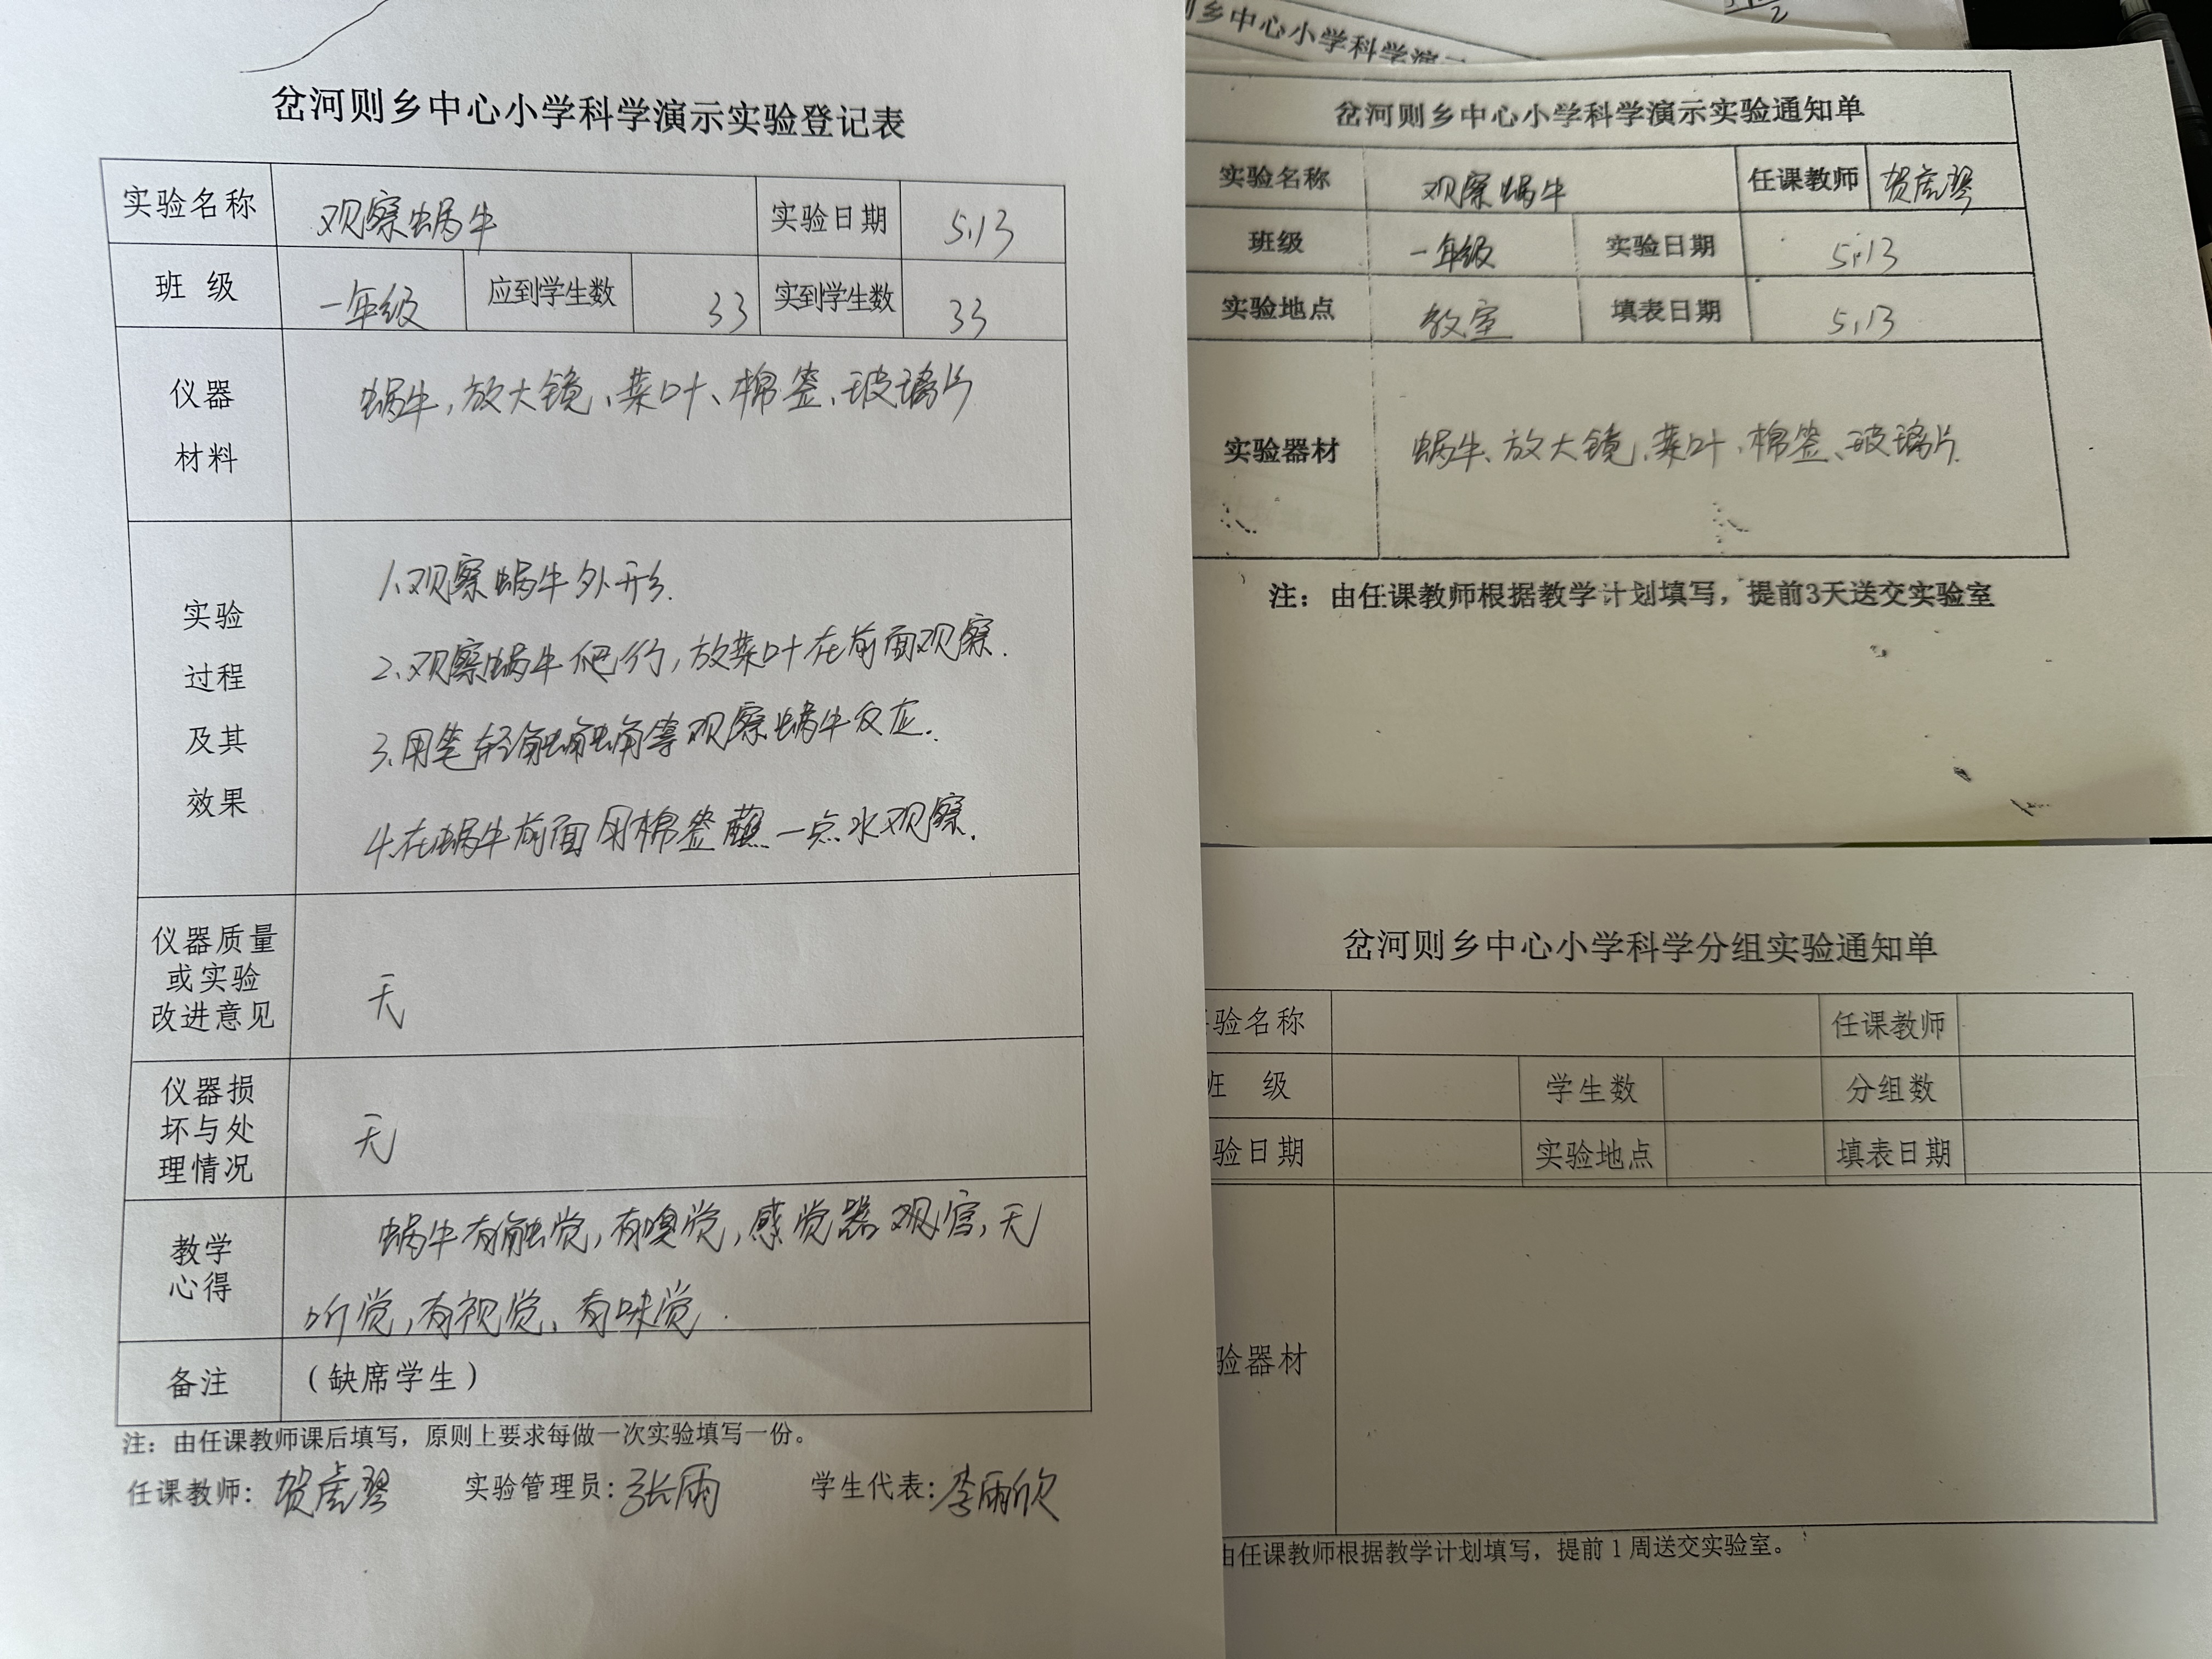 岔河则乡中心小学科学演示实验登记表
实验名称 观察蜗牛 实验日期 5.13
班 级 一年级 应到学生数 33 实到学生数 33
仪器
材料
蜗牛,放大镜、菜叶、棉签、玻璃片
实验
过程
及其
效果
1.观察蜗牛外形.
2.观察蜗牛爬行,放菜叶在前面观察.
3.用笔轻触触角等观察蜗牛反应.
4.在蜗牛前面用棉签蘸一点水观察.
仪器质量
或实验
改进意见
无
仪器损
坏与处
理情况
无
教学
心得
蜗牛有触觉,有嗅觉,感觉器观官,无
听觉,有视觉、有味觉.
备注 (缺席学生)
注:由任课教师课后填写,原则上要求每做一次实验填写一份。
任课教师: 贺虎琴 实验管理员:张雨 学生代表:李雨欣
乡中心小学科学演示
岔河则乡中心小学科学演示实验通知单
实验名称 观察蜗牛 任课教师 贺虎琴
班级 一年级 实验日期 5.13
实验地点 教室 填表日期 5.13
实验器材 蜗牛、放大镜、菜叶、棉签、玻璃片.
注:由任课教师根据教学计划填写,提前3天送交实验室
岔河则乡中心小学科学分组实验通知单
验名称 任课教师
班 级 学生数 分组数
验日期 实验地点 填表日期
验器材
由任课教师根据教学计划填写,提前1周送交实验室。